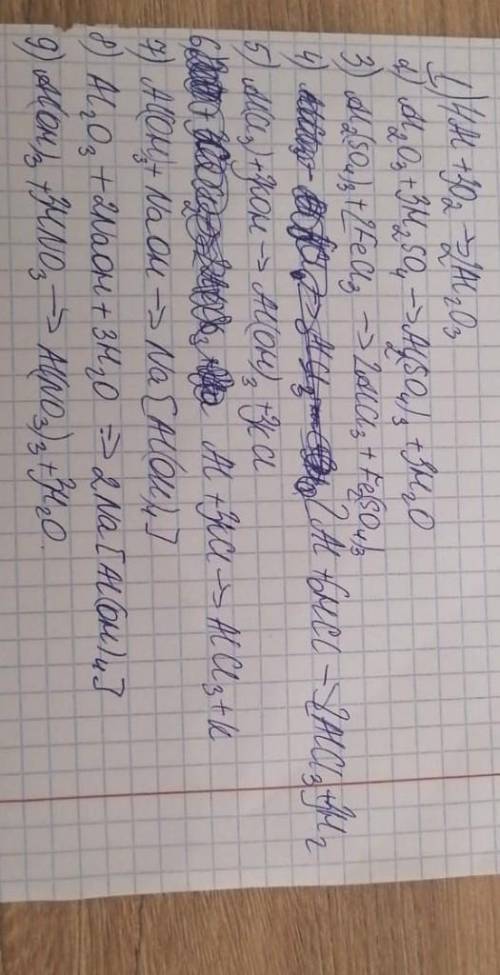 1) 4Al + 3O2 → 2Al2O3
2) Al2O3 + 3H2SO4 → Al2(SO4)3 + 3H2O
3) Al2(SO4)3 + 2FeCl3 → 2AlCl3 + Fe2(SO4)3
4) 2Al + 6HCl → 2AlCl3 + 3H2
5) AlCl3 + 3KOH → Al(OH)3 + 3KCl
6) Al + 3KCl → AlCl3 + K
7) Al(OH)3 + NaOH → Na[Al(OH)4]
8) Al2O3 + 2NaOH + 3H2O => 2Na[Al(OH)4]
9) Al(OH)3 + 3HNO3 → Al(NO3)3 + 3H2O.